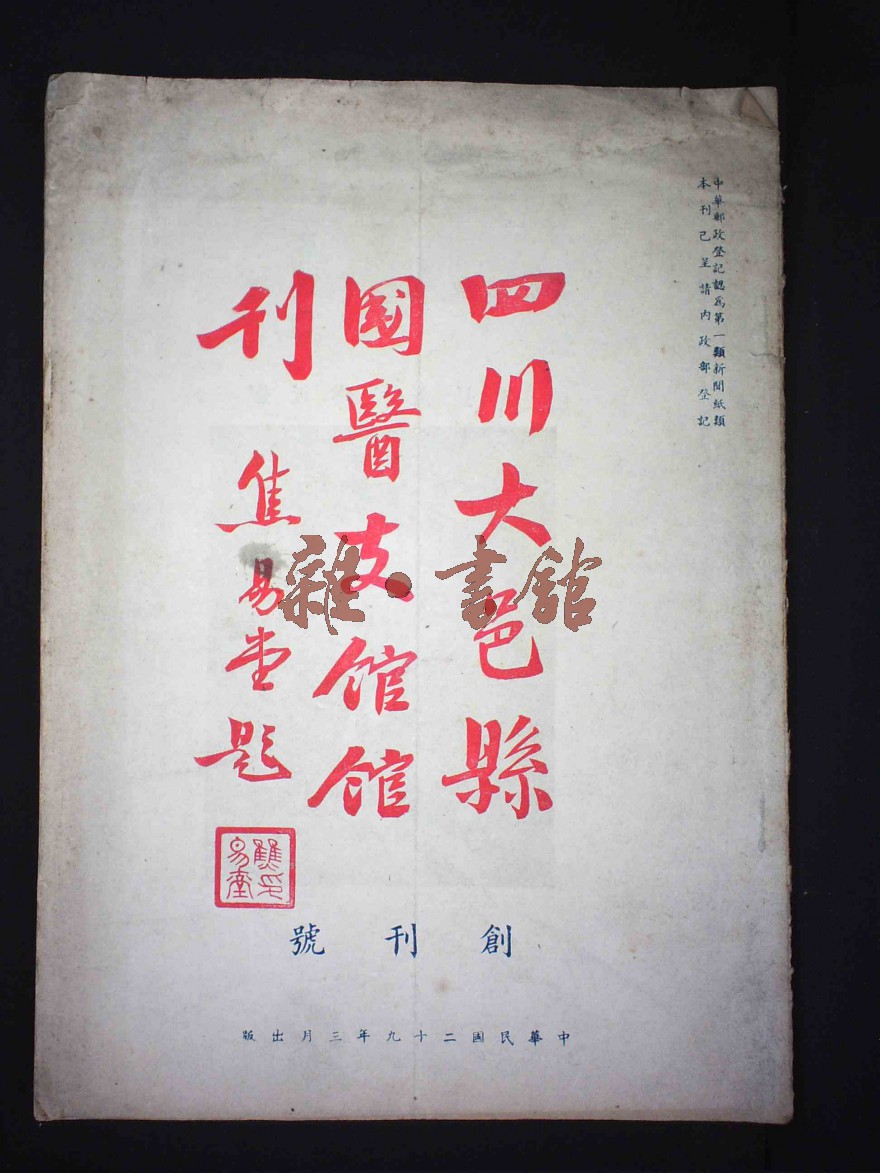 中華郵政登記認爲第一類新聞紙類
本刊己呈請內政部登記
四川大邑縣
國醫支館館
刊
焦易堂題
焦易堂印
創刊號
中華民國二十九年三月出版
雜·書館